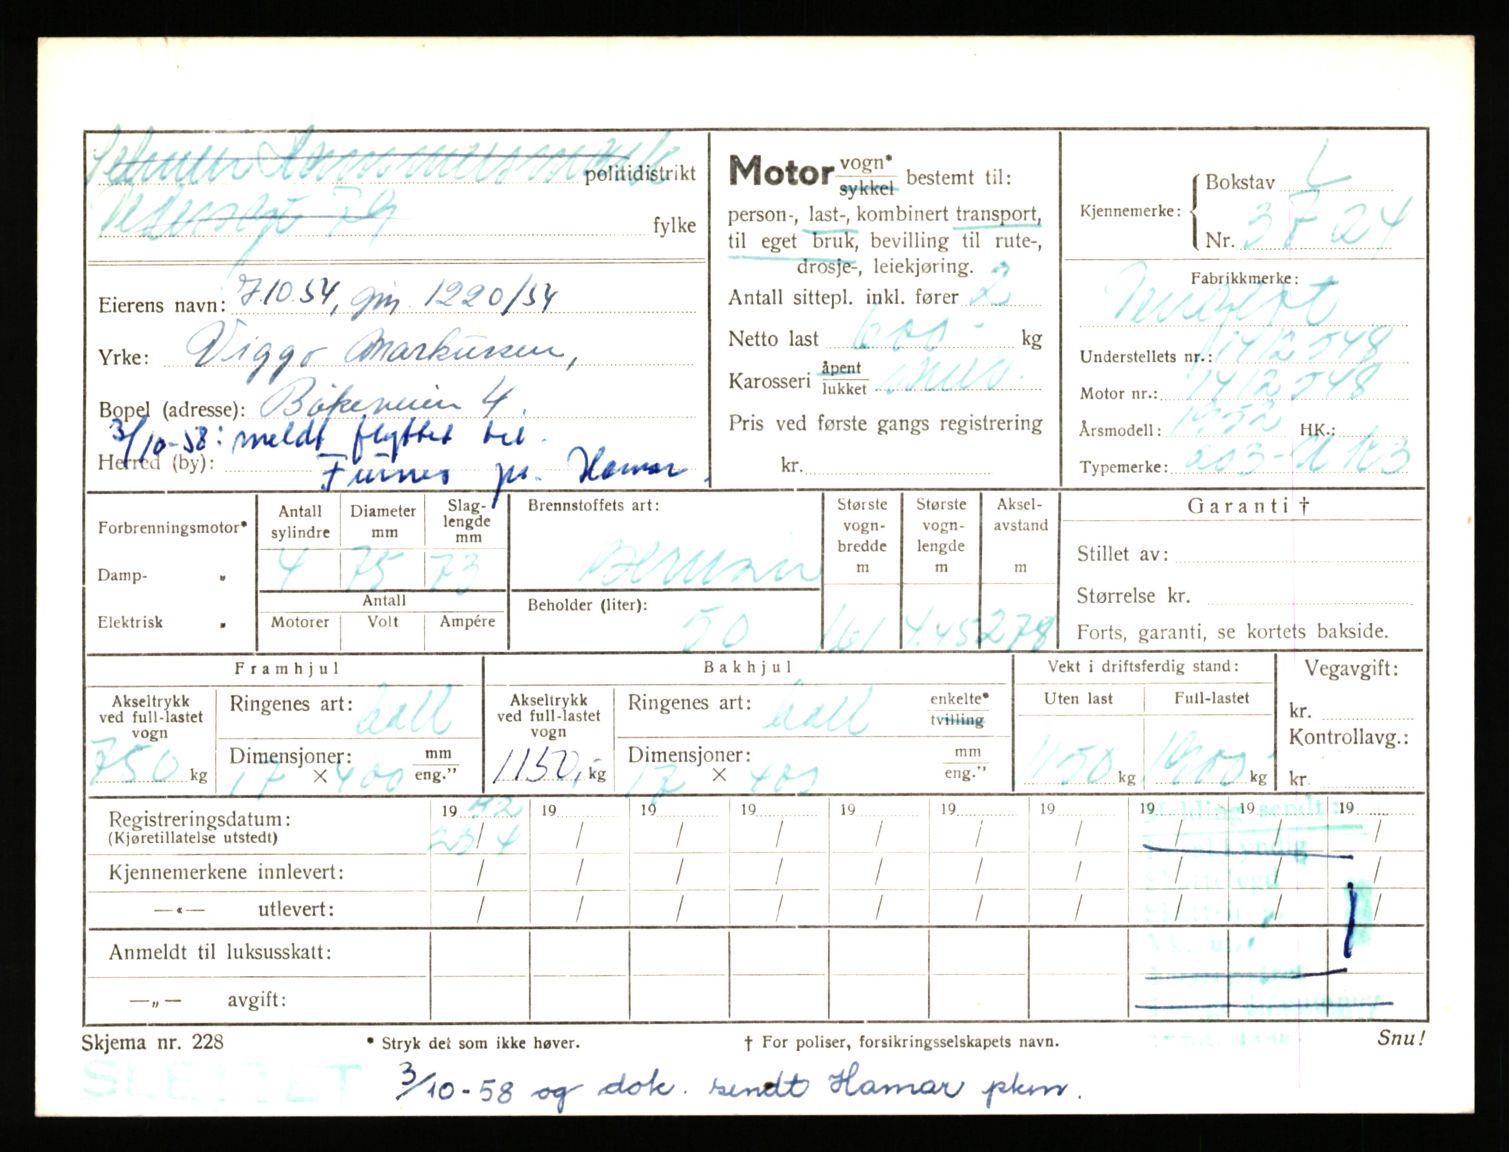 politidistrikt
fylke
Eierens navn: 7.10.54, 1220/54
Yrke: Viggo Markussen,
Bopel (adresse): Bökeveien 4.
3/10-58: meldt flyttet til
Herred (by): Furnes pr. Hamar.
Motor vogn* sykkel bestemt til:
person-, last-, kombinert transport,
til eget bruk, bevilling til rute-,
drosje-, leiekjøring.
Antall sittepl. inkl. fører 2
Netto last 600 - kg
Karosseri åpent lukket
Pris ved første gangs registrering
kr.
Kjennemerke: Bokstav L
Nr. 3724
Fabrikkmerke:
Understellets nr.: 1412548
Motor nr.: 1412548
Årsmodell: 1952 HK.:
Typemerke: 203-
Forbrenningsmotor*
Damp- „
Elektrisk „
Antall sylindre Diameter mm Slaglengde mm
4 75 73
Antall
Motorer Volt Ampére
Brennstoffets art:
Bensin
Beholder (liter):
50
Største vognbredde m
161
Største vognlengde m
4.45
Akselavstand m
278
Garanti †
Stillet av:
Størrelse kr.
Forts, garanti, se kortets bakside.
Framhjul
Akseltrykk ved full-lastet vogn
750 kg
Ringenes art: Luft
Dimensjoner: mm eng."
17 × 400
Bakhjul
Akseltrykk ved full-lastet vogn
1150,- kg
Ringenes art: Luft enkelte* tvilling
Dimensjoner: mm eng."
17 × 400
Vekt i driftsferdig stand:
Uten last Full-lastet
1150 kg 1900 kg
Vegavgift:
kr.
Kontrollavg.:
kr.
Registreringsdatum: 19 52 19 19 19 19 19 19 19 19 19
(Kjøretillatelse utstedt) 23/4 / / / / / / / / /
Kjennemerkene innlevert: / / / / / / / / / /
—«— utlevert: / / / / / / / / / /
Anmeldt til luksusskatt:
—„— avgift:
Melding sendt:
Skjema nr. 228 * Stryk det som ikke høver. † For poliser, forsikringsselskapets navn. Snu!
SLETTET 3/10-58 og dok. sendt Hamar pkm.